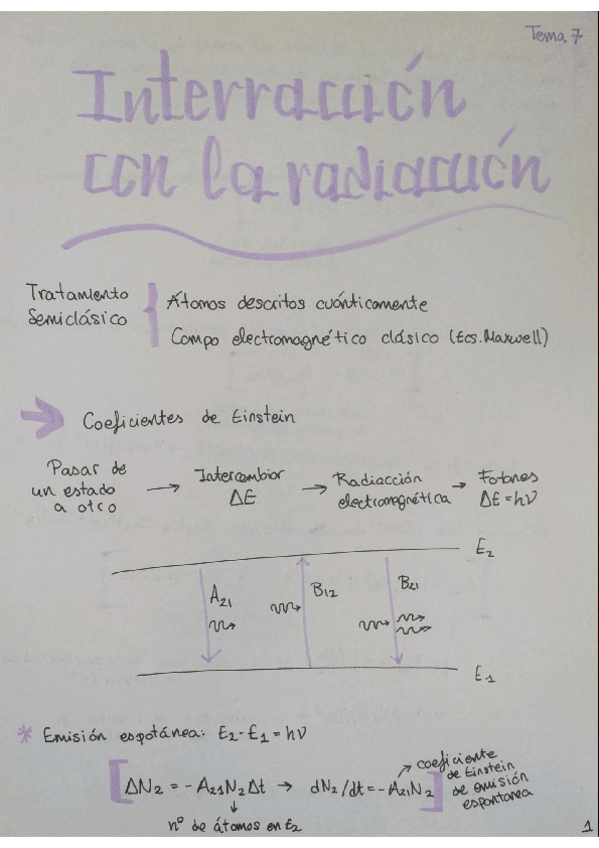 Tema 7
Interracción
con la radiación
Tratamiento
Semiclásico
Átomos descritos cuánticamente
Campo electromagnético clásico (Ecs. Maxwell)
Coeficientes de Einstein
Pasar de
un estado
a otro
→ Intercambior
ΔE
→ Radiacción
electromagnética
→ Fotones
ΔE = hν
E₂
A₂₁
B₁₂
B₂₁
E₁
* Emisión espotánea: E₂-E₁ = hν
[ΔN₂ = -A₂₁N₂Δt → dN₂/dt = -A₂₁N₂]
↗ coeficiente
de Einstein
de emisión
espontanea
↓
nº de átomos en E₂
1